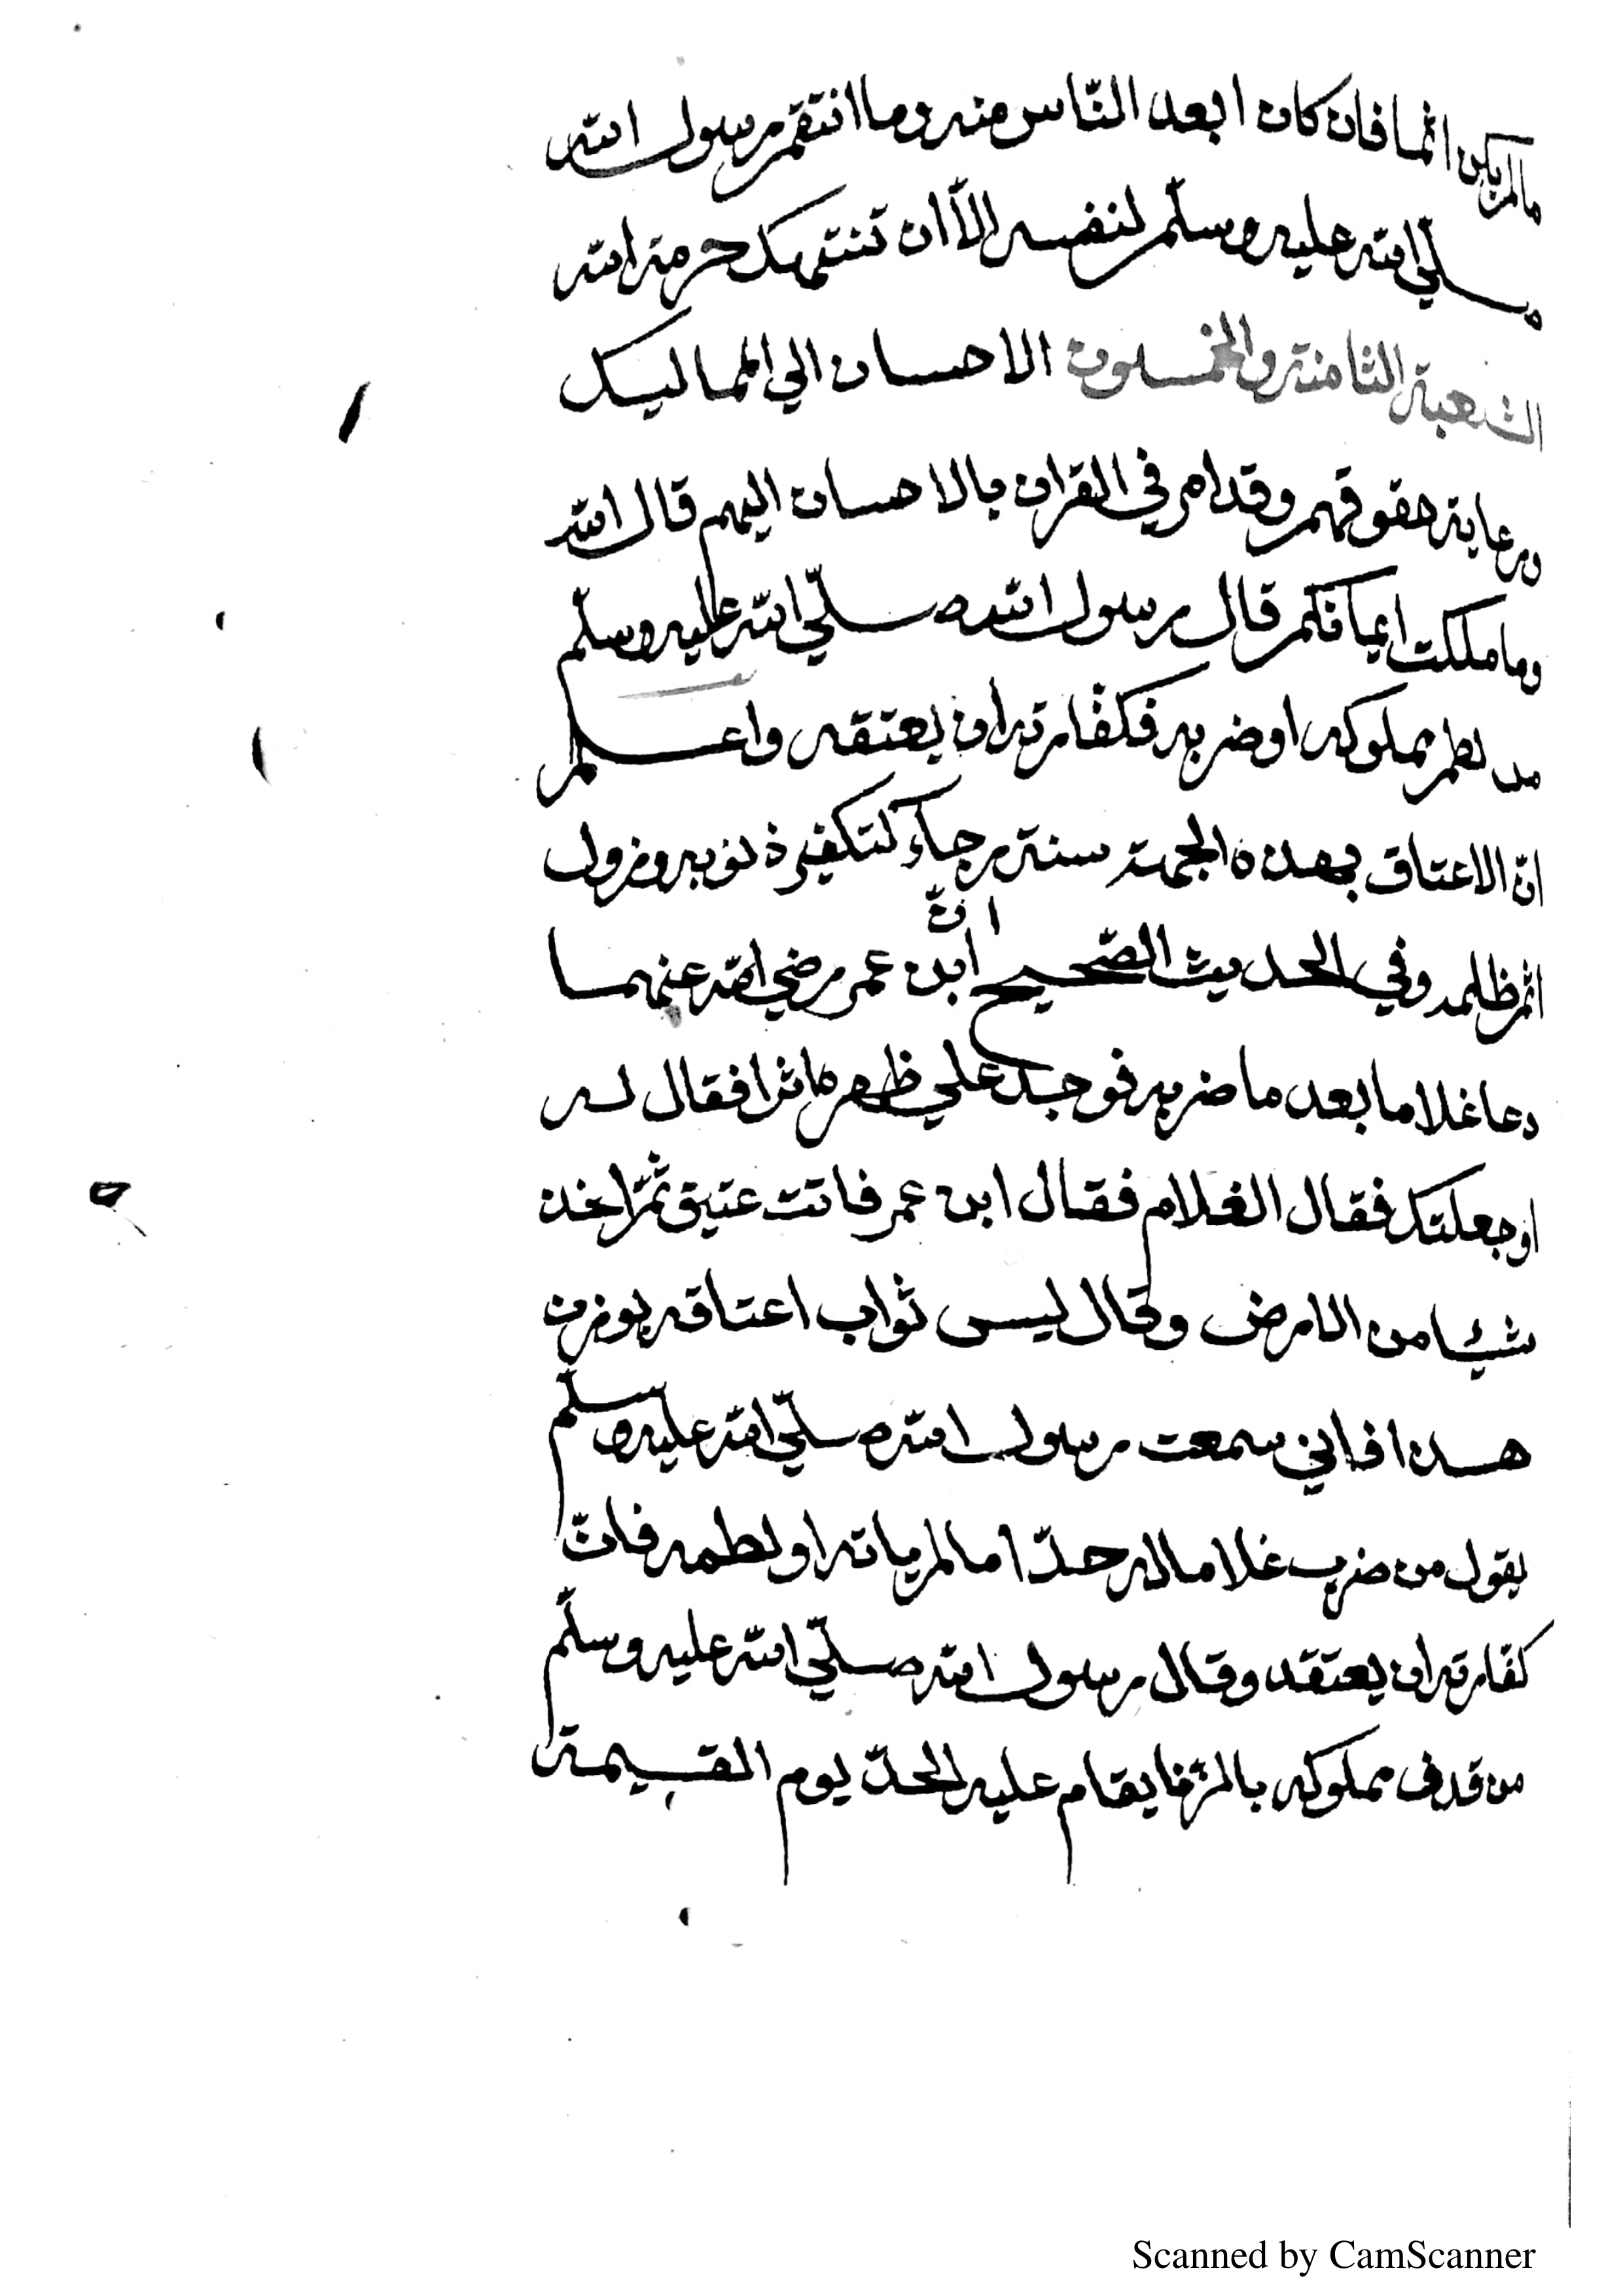 مالم يكن اثما فان كان ابعد النّاس منه وما انتقم رسول الله
صلّي الله عليه وسلّم لنفسه الّا ان تنتهك حرمة الله
الشعبة الثامنة والخمسون الاحسان الي المماليك
ورعاية حقوقهم وقد امر في القران بالاحسان اليهم قال الله
وما ملكت ايمانكم قال رسول الله صلّي الله عليه وسلّم
من لطم مملوكه او ضربه فكفّارته ان يعتقه واعلم
انّ الاعتاق بهذه الجهة سنة رجاءً لتكفير ذنوبه ونزول
اثم ظلمه وفي الحديث الصّحيح انّ ابن عمر رضي الله عنهما
دعا غلاما بعد ما ضربه فوجد علي ظهره اثرا فقال له
اوجعلتك فقال الغلام فقال ابن عمر فانت عتيق ثمّ اخذ
شيئا من الارض وقال ليس ثواب اعتاقه بوزن
هذا فاني سمعت رسول الله صلّي الله عليه وسلّم
يقول من ضرب غلاما له حدّا ما لم ياته او لطمه فانّ
كفّارته ان يعتقه وقال رسول الله صلّي الله عليه وسلّم
من قذف مملوكه بالزنا يقام عليه الحدّ يوم القيمة
Scanned by CamScanner